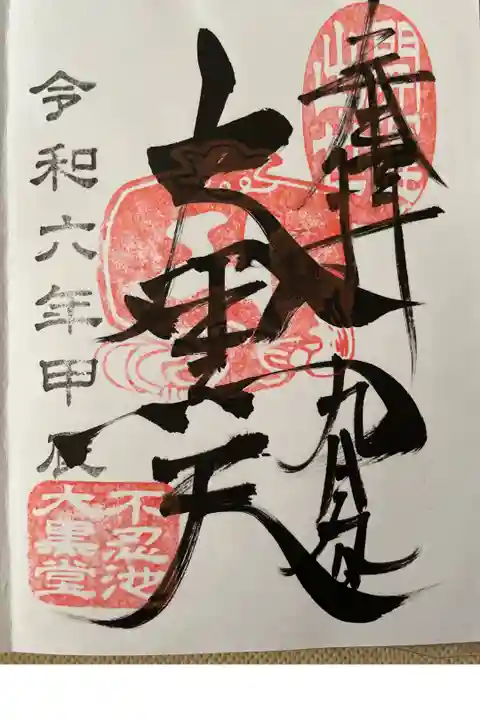 奉拝
九月九日
大黒天
令和六年甲辰
不忍池
大黒堂